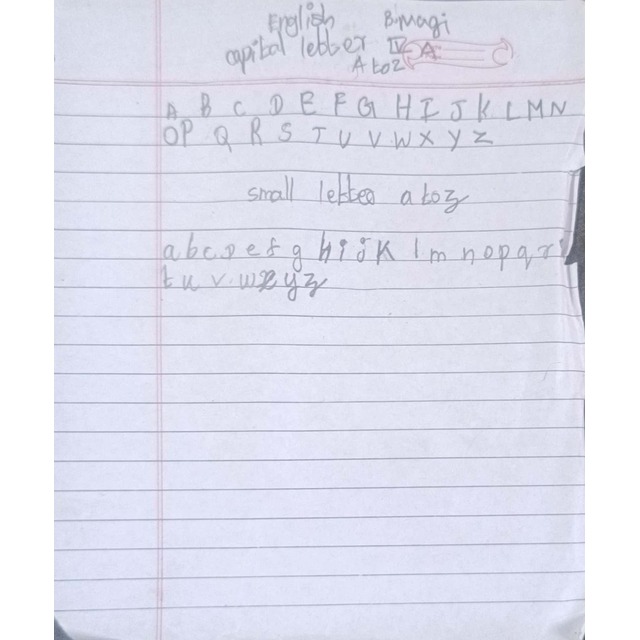 English B.Magi
capital letter IV A
A to Z
A B C D E F G H I J K L M N
O P Q R S T U V W X Y Z
small letter a to z
a b c d e f g h i j k l m n o p q r
t u v w x y z